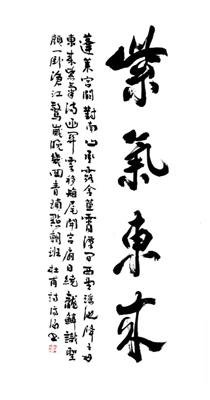 紫氣東來
蓬萊宮闕對南山承露金莖霄漢間西望瑤池降王母
東來紫氣滿函關雲移雉尾開宮扇日繞龍鱗識聖
顏一臥滄江驚歲晚幾回青瑣點朝班杜甫詩